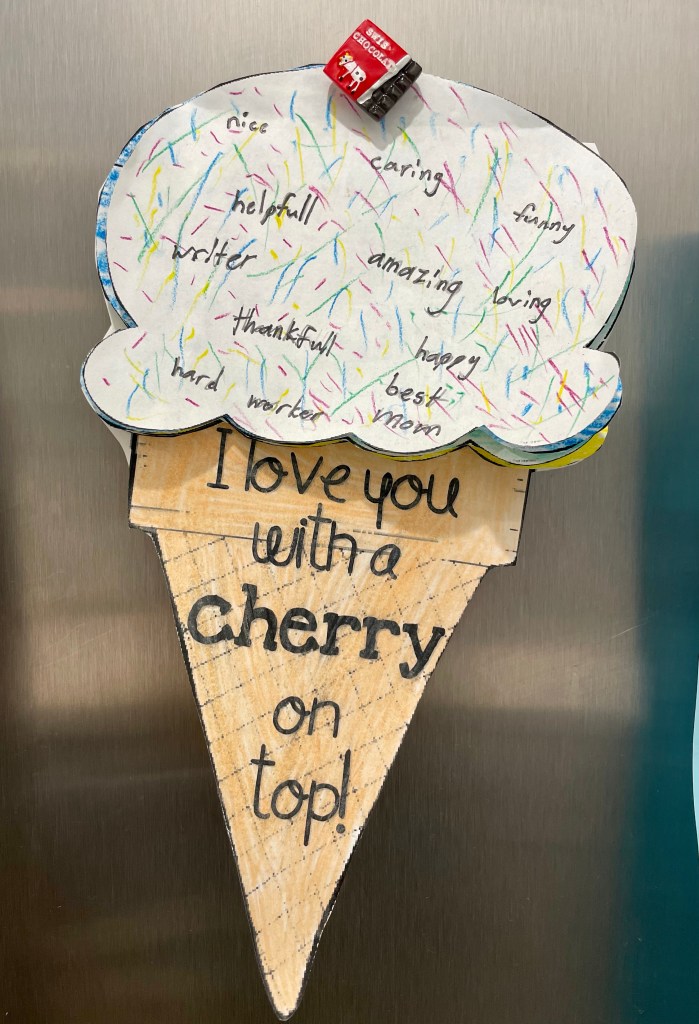 SWISS
CHOCOLATE
nice
caring
helpfull
funny
writer
amazing
loving
thankfull
happy
hard
worker
best
mom
I love you
with a
cherry
on
top!